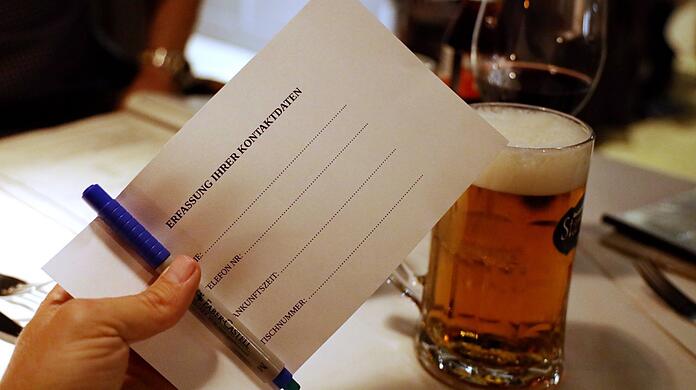 ERFASSUNG IHRER KONTAKTDATEN
E:
ELEFON NR:
ANKUNFTSZEIT:
TISCHNUMMER:
FABER-CASTELL